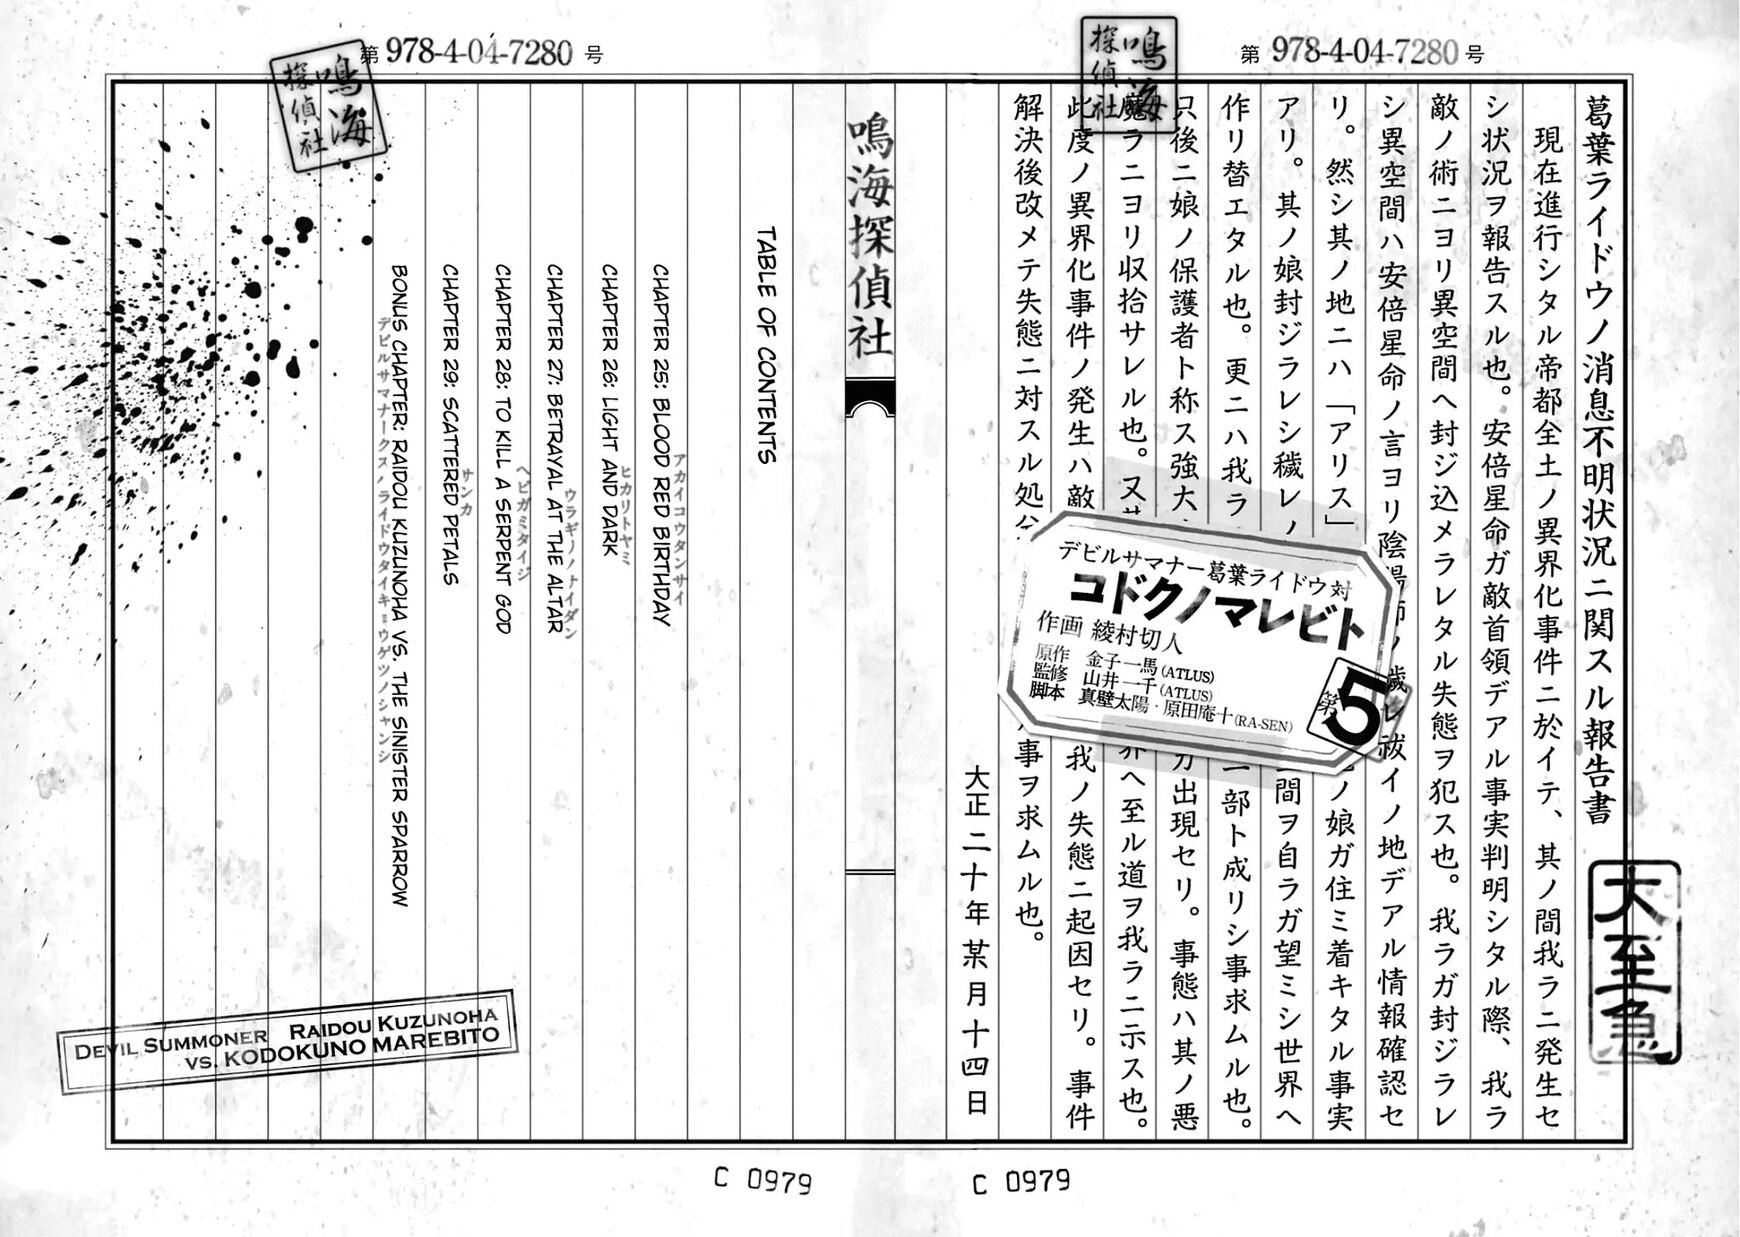 第978-4-04-7280号
鳴海探偵社
葛葉ライドウノ消息不明状況ニ関スル報告書
現在進行シタル帝都全土ノ異界化事件ニ於イテ、其ノ間我ラニ発生セ
シ状況ヲ報告スル也。安倍星命ガ敵首領デアル事実判明シタル際、我ラ
敵ノ術ニヨリ異空間ヘ封ジ込メラレタル失態ヲ犯ス也。我ラガ封ジラレ
シ異空間ハ安倍星命ノ言ヨリ陰陽師ノ穢レ祓イノ地デアル情報確認セ
リ。然シ其ノ地ニハ「アリス」ノ娘ガ住ミ着キタル事実
アリ。其ノ娘封ジラレシ穢レノ間ヲ自ラガ望ミシ世界ヘ
作リ替エタル也。更ニハ我ラ一部ト成リシ事求ムル也。
只後ニ娘ノ保護者ト称ス強大ガ出現セリ。事態ハ其ノ悪
魔ラニヨリ収拾サレル也。又其界ヘ至ル道ヲ我ラニ示ス也。
此度ノ異界化事件ノ発生ハ敵我ノ失態ニ起因セリ。事件
解決後改メテ失態ニ対スル処分事ヲ求ムル也。
大正二十年某月十四日
大至急
デビルサマナー葛葉ライドウ対
コドクノマレビト
作画 綾村切人
原作 金子一馬(ATLUS)
監修 山井一千(ATLUS)
脚本 真壁太陽・原田庵十(RA-SEN)
第5
C 0979
第978-4-04-7280号
鳴海探偵社
鳴海探偵社
TABLE OF CONTENTS
CHAPTER 25: BLOOD RED BIRTHDAY
アカイコウタンサイ
CHAPTER 26: LIGHT AND DARK
ヒカリトヤミ
CHAPTER 27: BETRAYAL AT THE ALTAR
ウラギリノナイダン
CHAPTER 28: TO KILL A SERPENT GOD
ヘビガミタイジ
CHAPTER 29: SCATTERED PETALS
サンカ
BONUS CHAPTER: RAIDOU KUZUNOHA VS. THE SINISTER SPARROW
デビルサマナークズノハライドウタイキョウゲツノシャンシ
DEVIL SUMMONER RAIDOU KUZUNOHA
VS. KODOKUNO MAREBITO
C 0979